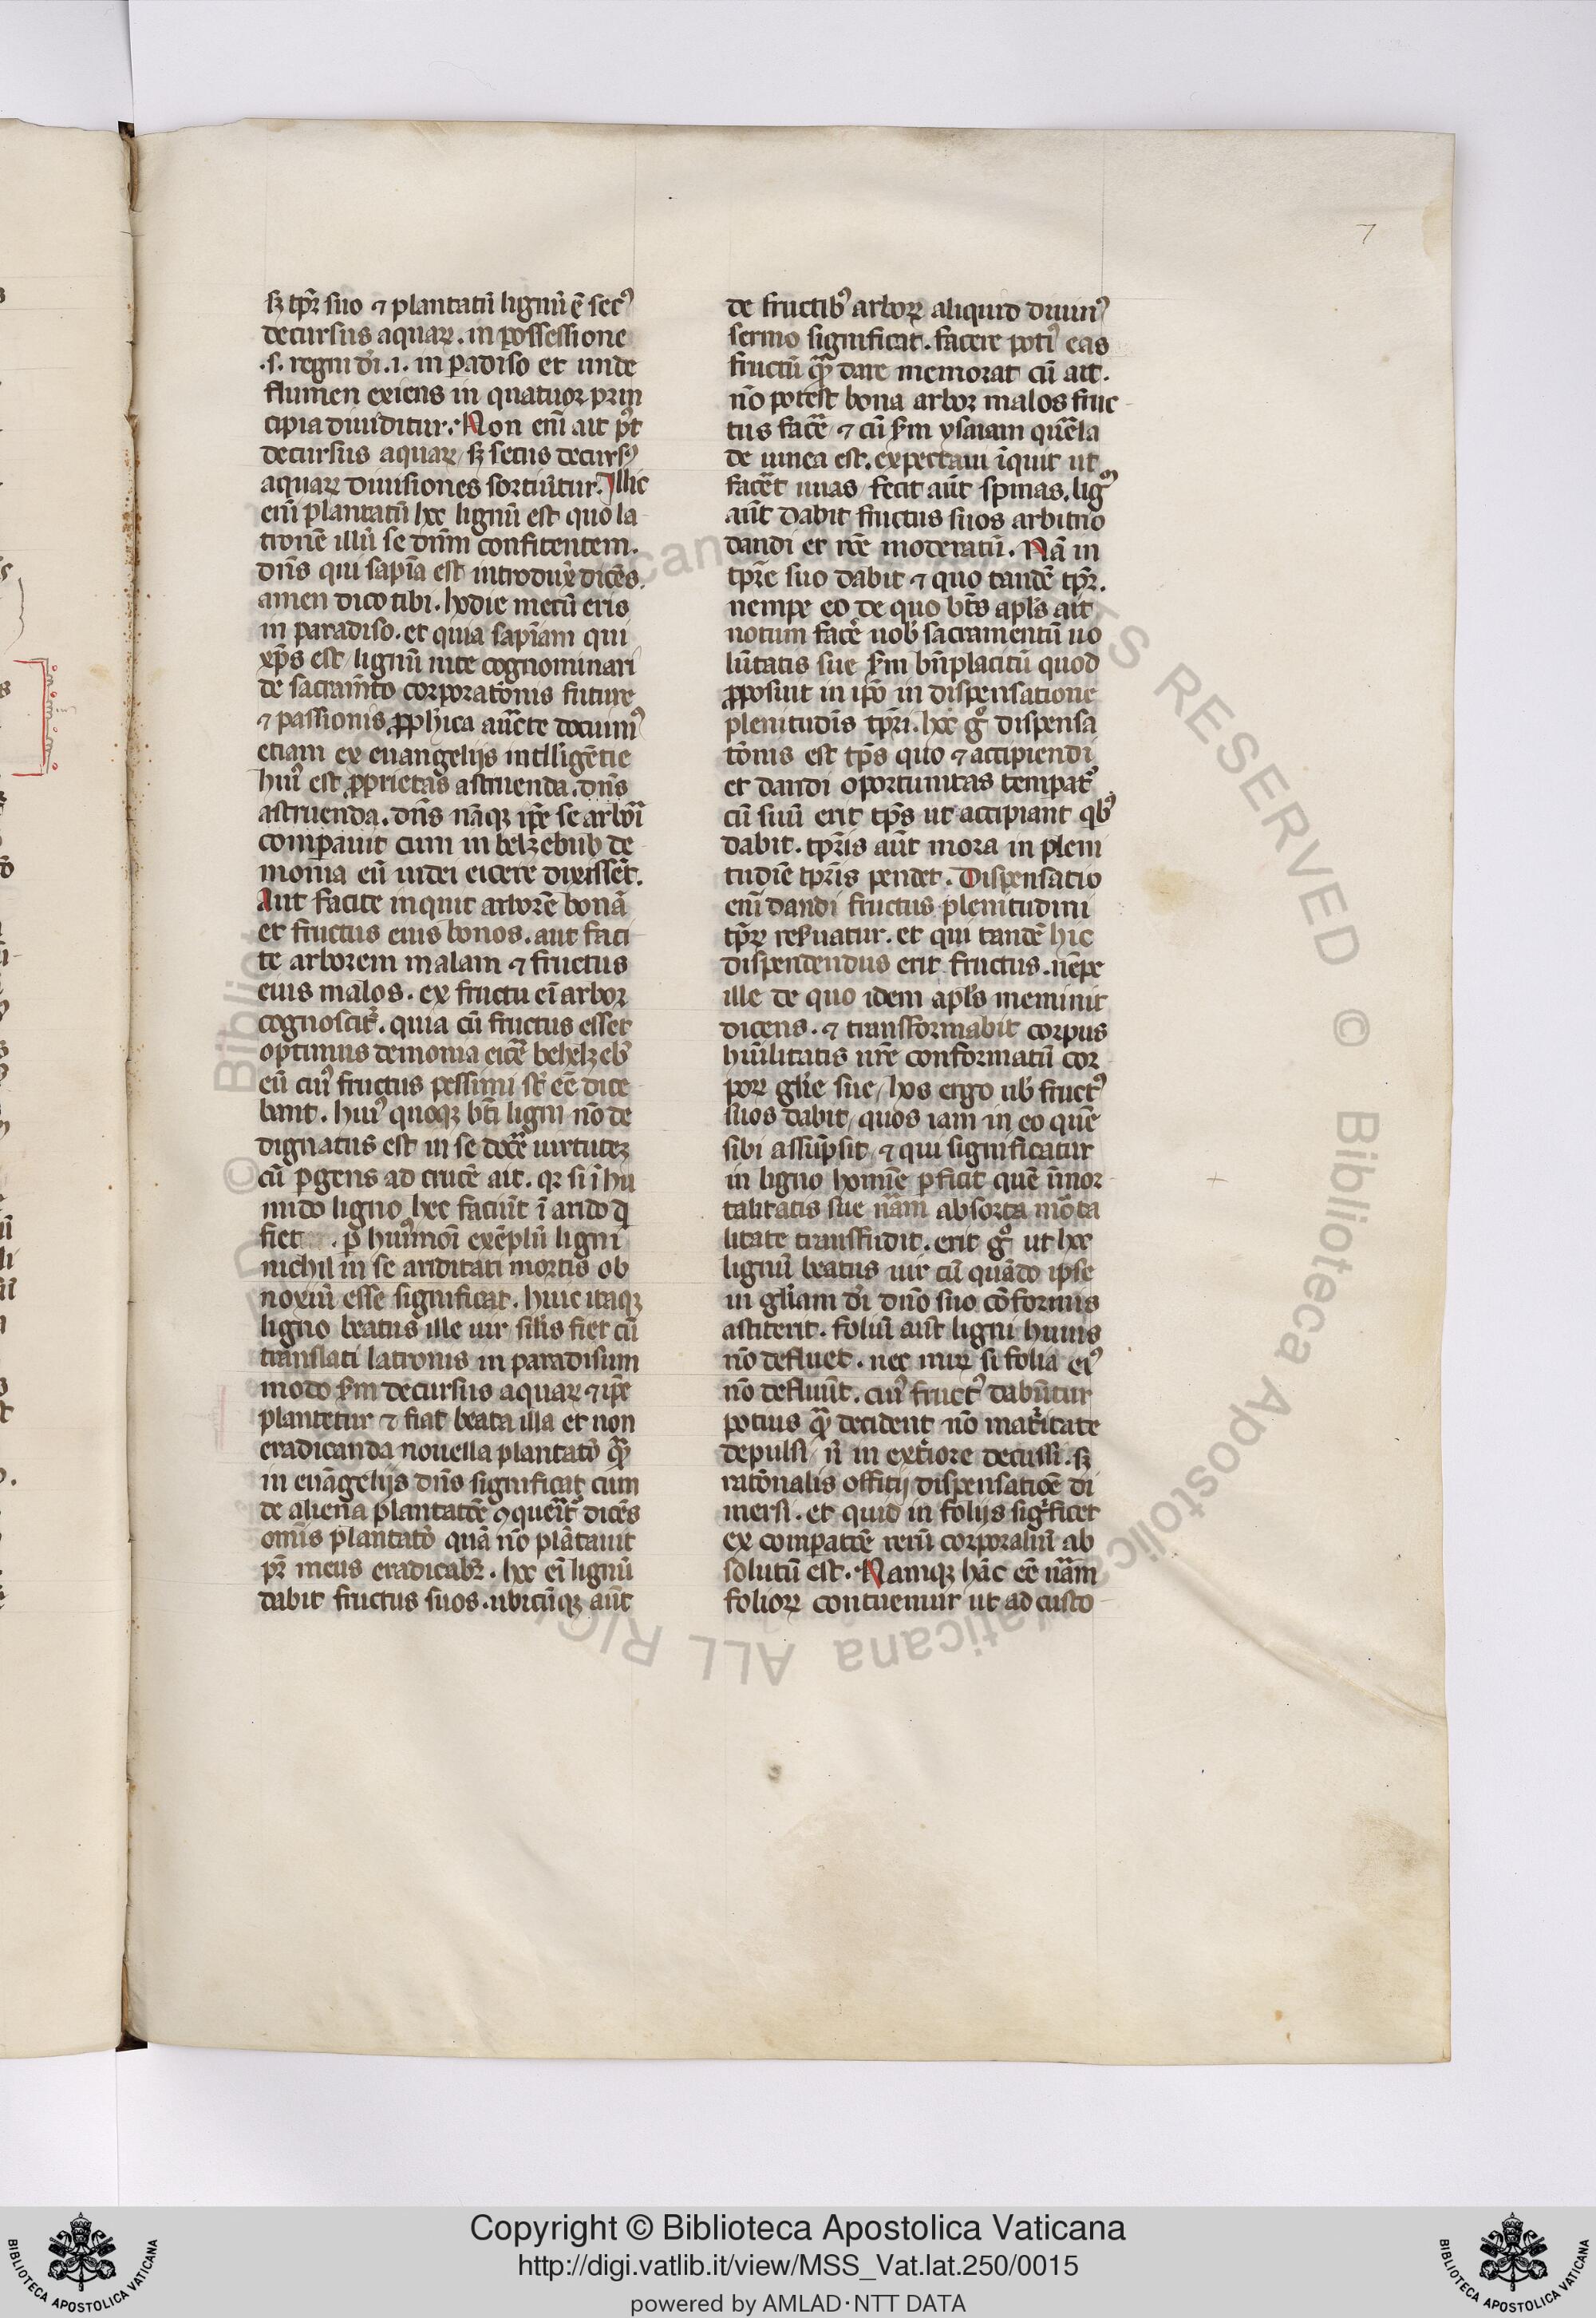 7
sꝫ tp̄r suo ⁊ plantatū lignū ē secꝰ
decursus aquaꝝ. in possessione
.s. regni dī .i. in padiso et unde
flumen exiens in quatuor prin
cipia diuiditur. Non eni ait p̄t
decursus aquaꝝ sꝫ secus decursꝰ
aquaꝝ diuisiones sortiūtur. Illic
eni plantatū hoc lignū est quo la
tronē illū se dnm confitentem.
dn̄s qui sapia est introdux̄ dicēs.
amen dico tibi. hodie mecū eris
in paradiso. et quia sapīam qui
xp̄s est lignū uite cognominari
de sacramto corporatōnis future
⁊ passionis ꝓph̄ica auc̄te docuimꝰ
etiam ex euangelijs intlligētie
huiꝰ est ꝓprietas astruenda. dn̄s
astruenda. dn̄s nāqꝫ ip̄e se arbori
comparauit cum in belzebub de
monia eū iudei eicere dixissēt.
Aut facite inquit arborē bonā
et fructus eius bonos. aut faci
te arborem malam ⁊ fructus
eius malos. ex fructu ei arbor
cognoscitr̄. quia cū fructus esset
optimus demonia eicē behelzebꝰ
eū cuiꝰ fructus pessimi st̄ eē dice
bant. huiꝰ quoqꝫ bti ligni nō de
dignatus est in se docē uirtuteꝫ
cū pgens ad crucē ait. qr si ī hu
mido ligno hec faciūt ī arido qͥ
fiet . p huiꝰmoī exēplū ligni
nichil in se ariditati mortis ob
noxiū esse significat. huic itaqꝫ
ligno beatus ille uir silis fiet cū
translati latronis in paradisum
modo s̄m decursus aquaꝝ ⁊ ip̄e
plantetur ⁊ fiat beata illa et non
eradicanda nouella plantatō quā
in euāgelijs dn̄s significat cum
de aliena plantatōe ꝯquerit dicēs
omis plantatō quā nō plātauit
pr̄ meus eradicabr̄. hoc ei lignū
dabit fructus suos. ubicūqꝫ aūt
de fructibꝰ arboꝝ aliquid diuinꝰ
sermo significat. facere potiꝰ eas
fructū quā dare memorat cū ait.
nō potest bona arbor malos fruc
tus facē ⁊ cū s̄m ysaiam quēla
de uinea est. expectaui īquit ut
facēt uuas fecit aūt spinas. lig
aūt dabit fructus suos arbitrio
dandi et rōe moderatū. Nā in
tp̄re suo dabit ⁊ quo tandē tp̄r.
nempe eo de quo bts apls ait
notum facē uob sacramentū uo
lūtatis sue s̄m bn̄placitū quod
ꝓposuit in ip̄o in dispensatione
plenitudīs tp̄ri. hec gͦ dispensa
tōnis est tp̄s quo ⁊ accipiendi
et dandi oportunitas tempatr̄
cū suū erit tp̄s ut accipiant qbꝰ
dabit. tp̄ris aūt mora in pleni
tudīe tp̄ris pendet. Dispensatio
eni dandi fructus plenitudini
tp̄rꝝ reſuatur. et qui tandē hic
dispendendus erit fructus. nēpe
ille de quo idem apls meminit
dicens. ⁊ transformabit corpus
hūilitatis nr̄e conformatū cor
pori glie sue / hos ergo ub fructꝰ
suos dabit quos iam in eo quē
sibi assūpsit ⁊ qui significatur
in ligno homīe pficit quē īmor
talitatis sue nam absorta mōta
litate transfudit. erit gͦ ut hoc
lignū beatus uir cū quādo ipse
in gliam dī dn̄o suo cōformis
astiterit. foliū aūt ligni huius
nō defluet. nec miꝝ si folia eiꝰ
nō defluūt. cuiꝰ fructꝰ dabūtur
potius quā decident nō matritate
depulsi n̄ in extiore decussi. sꝫ
ratōnalis offitij dispensatiōe di
mersi. et quid in folijs sigficet
ex compatōe rerū corporaliū ab
solutū est. Namqꝫ hāc eē nam
folioꝝ contuemur ut ad custo
Copyright © Biblioteca Apostolica Vaticana
http://digi.vatlib.it/view/MSS_Vat.lat.250/0015
powered by AMLAD·NTT DATA
BIBLIOTECA APOSTOLICA VATICANA
BIBLIOTECA APOSTOLICA VATICANA
© Biblioteca Apostolica Vaticana ALL RIGHTS RESERVED